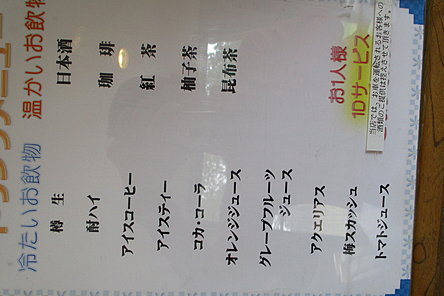 ドリンクメニュー
温かいお飲物
日本酒
珈琲
紅茶
柚子茶
昆布茶
お1人様
1Dサービス
当店では、お車を運転されるお客様への
酒類のご提供は控えさせて頂きます。
冷たいお飲物
樽生
酎ハイ
アイスコーヒー
アイスティー
コカ・コーラ
オレンジジュース
グレープフルーツ
ジュース
アクエリアス
梅スカッシュ
トマトジュース